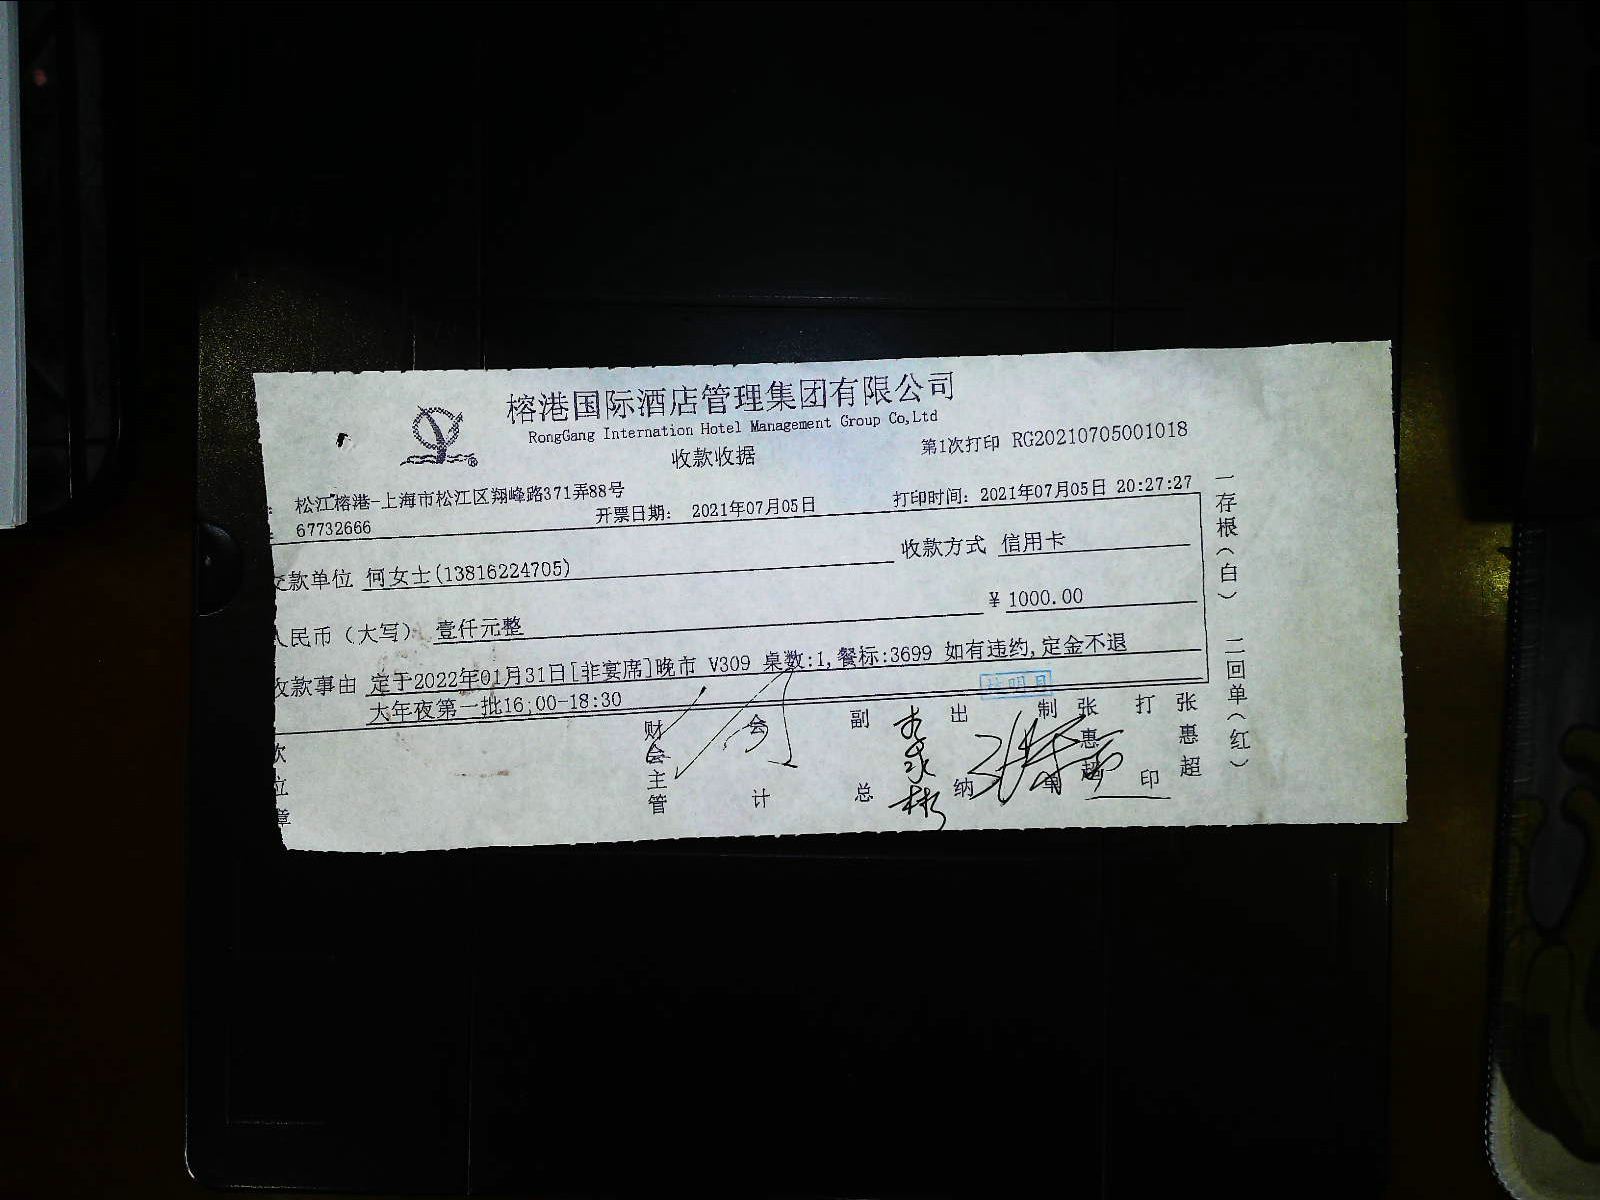 榕港国际酒店管理集团有限公司
RongGang Internation Hotel Management Group Co,Ltd
收款收据
第1次打印 RG20210705001018
松江榕港-上海市松江区翔峰路371弄88号
67732666
开票日期: 2021年07月05日
打印时间: 2021年07月05日 20:27:27
交款单位 何女士(13816224705)
收款方式 信用卡
人民币（大写） 壹仟元整
¥ 1000.00
收款事由 定于2022年01月31日[非宴席]晚市 V309 桌数:1,餐标:3699 如有违约,定金不退
大年夜第一批16;00-18:30
财会主管
会计
副总
出纳
制单 张惠超
打印 张惠超
一存根（白） 二回单（红）